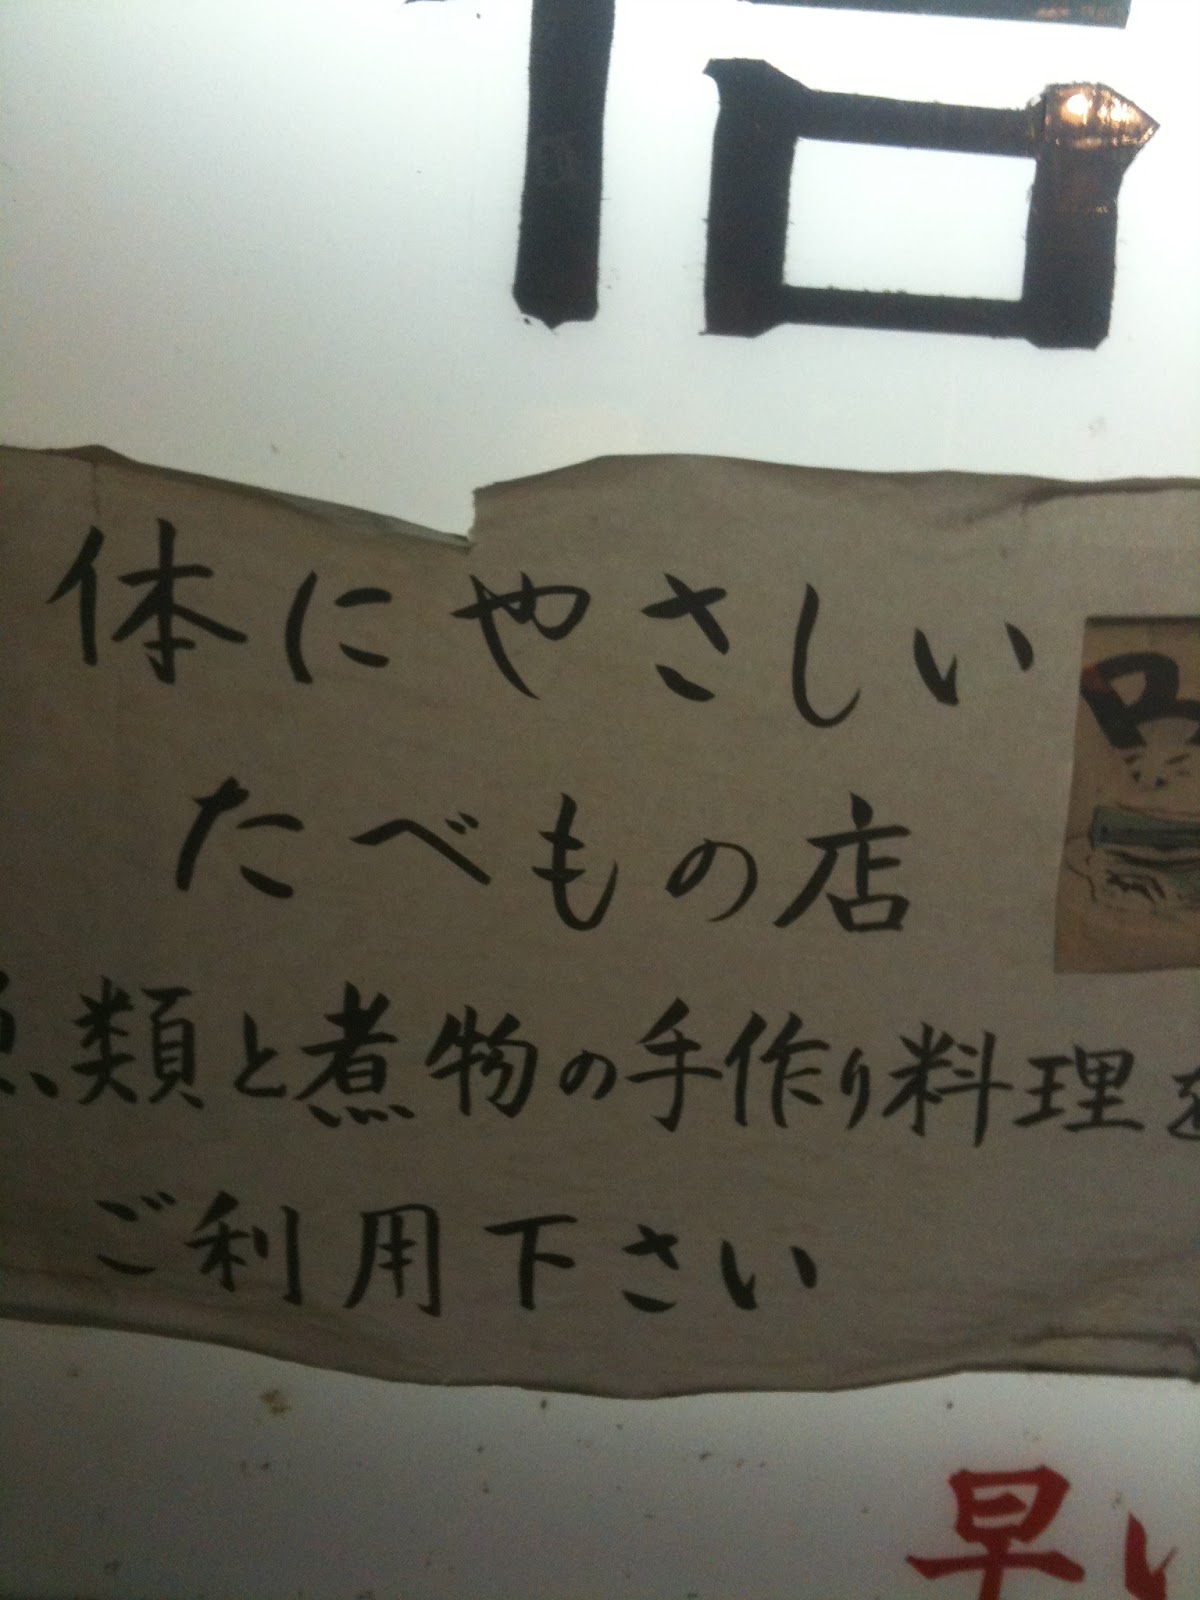 体にやさしい
たべもの店
魚類と煮物の手作り料理を
ご利用下さい
早い